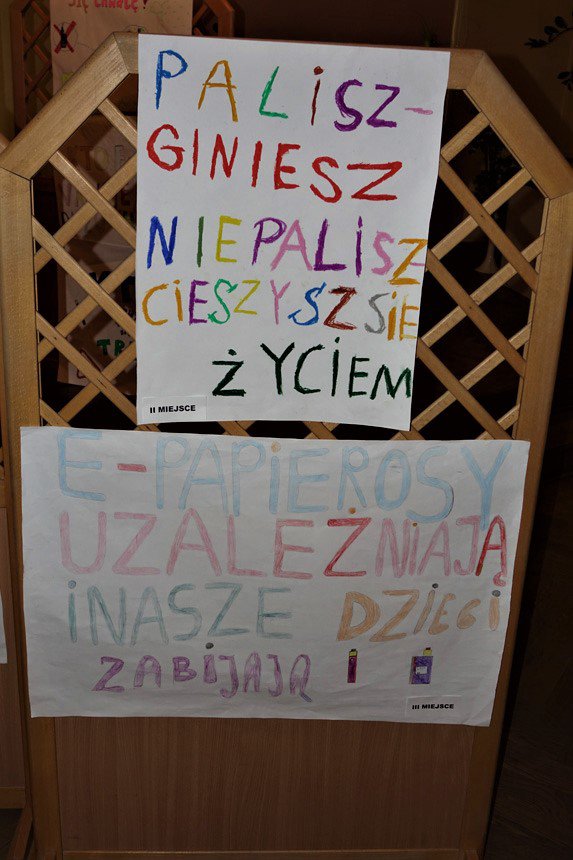 SIĘ CHWALĘ!
PALISZ-
GINIESZ
NIEPALISZ
CIESZYSZ SIE
ŻYCIEM
II MIEJSCE
E-PAPIEROSY
UZALEŻNIAJĄ
I NASZE DZIECI
ZABIJAJĄ
III MIEJSCE